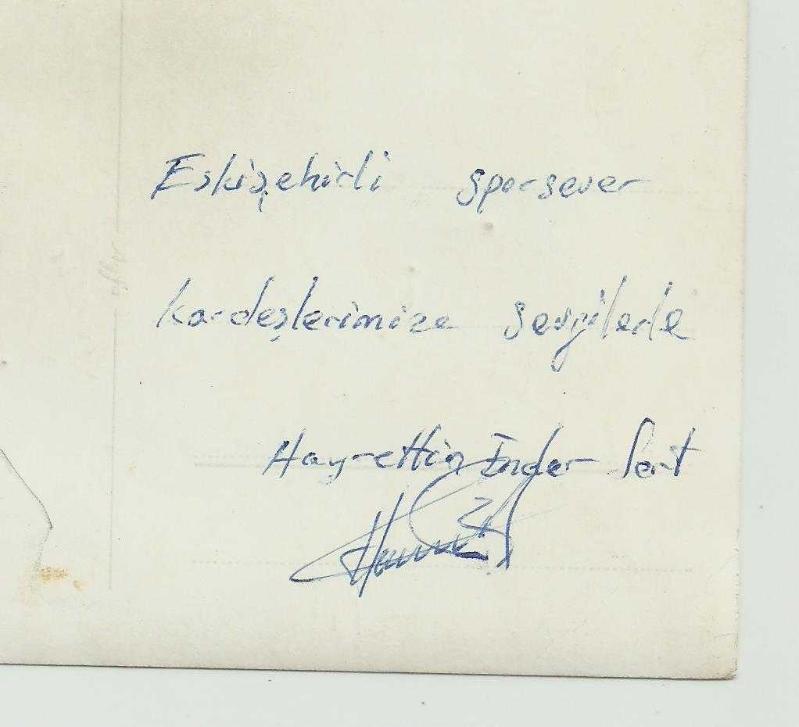 Eskişehirli sporsever
kardeşlerimize sevgilerle
Hayrettin Ender Sert